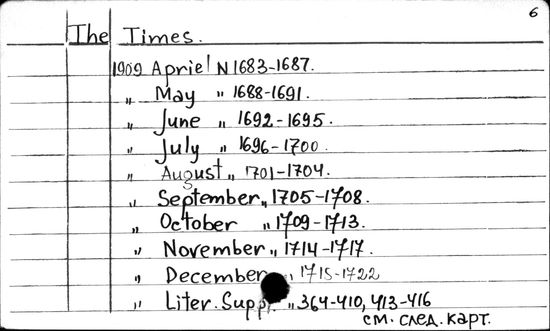 6
The Times.
1909 Apriel N 1683-1687.
" May " 1688-1691.
" June " 1692-1695.
" July " 1696-1700.
" August " 1701-1704.
" September " 1705-1708.
" October " 1709-1713.
" November " 1714-1717.
" December " 1715-1722
" Liter. Supp. " 364-410, 413-416
см. след. карт.